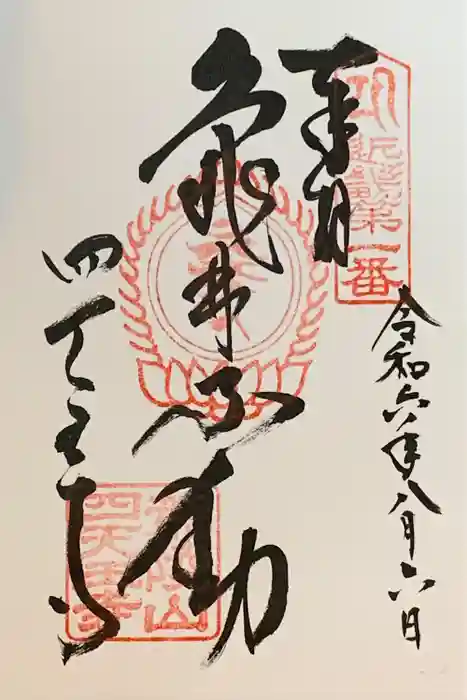 奉拝
近畿第一番
令和六年八月六日
亀井不動
四天王寺
四天王寺